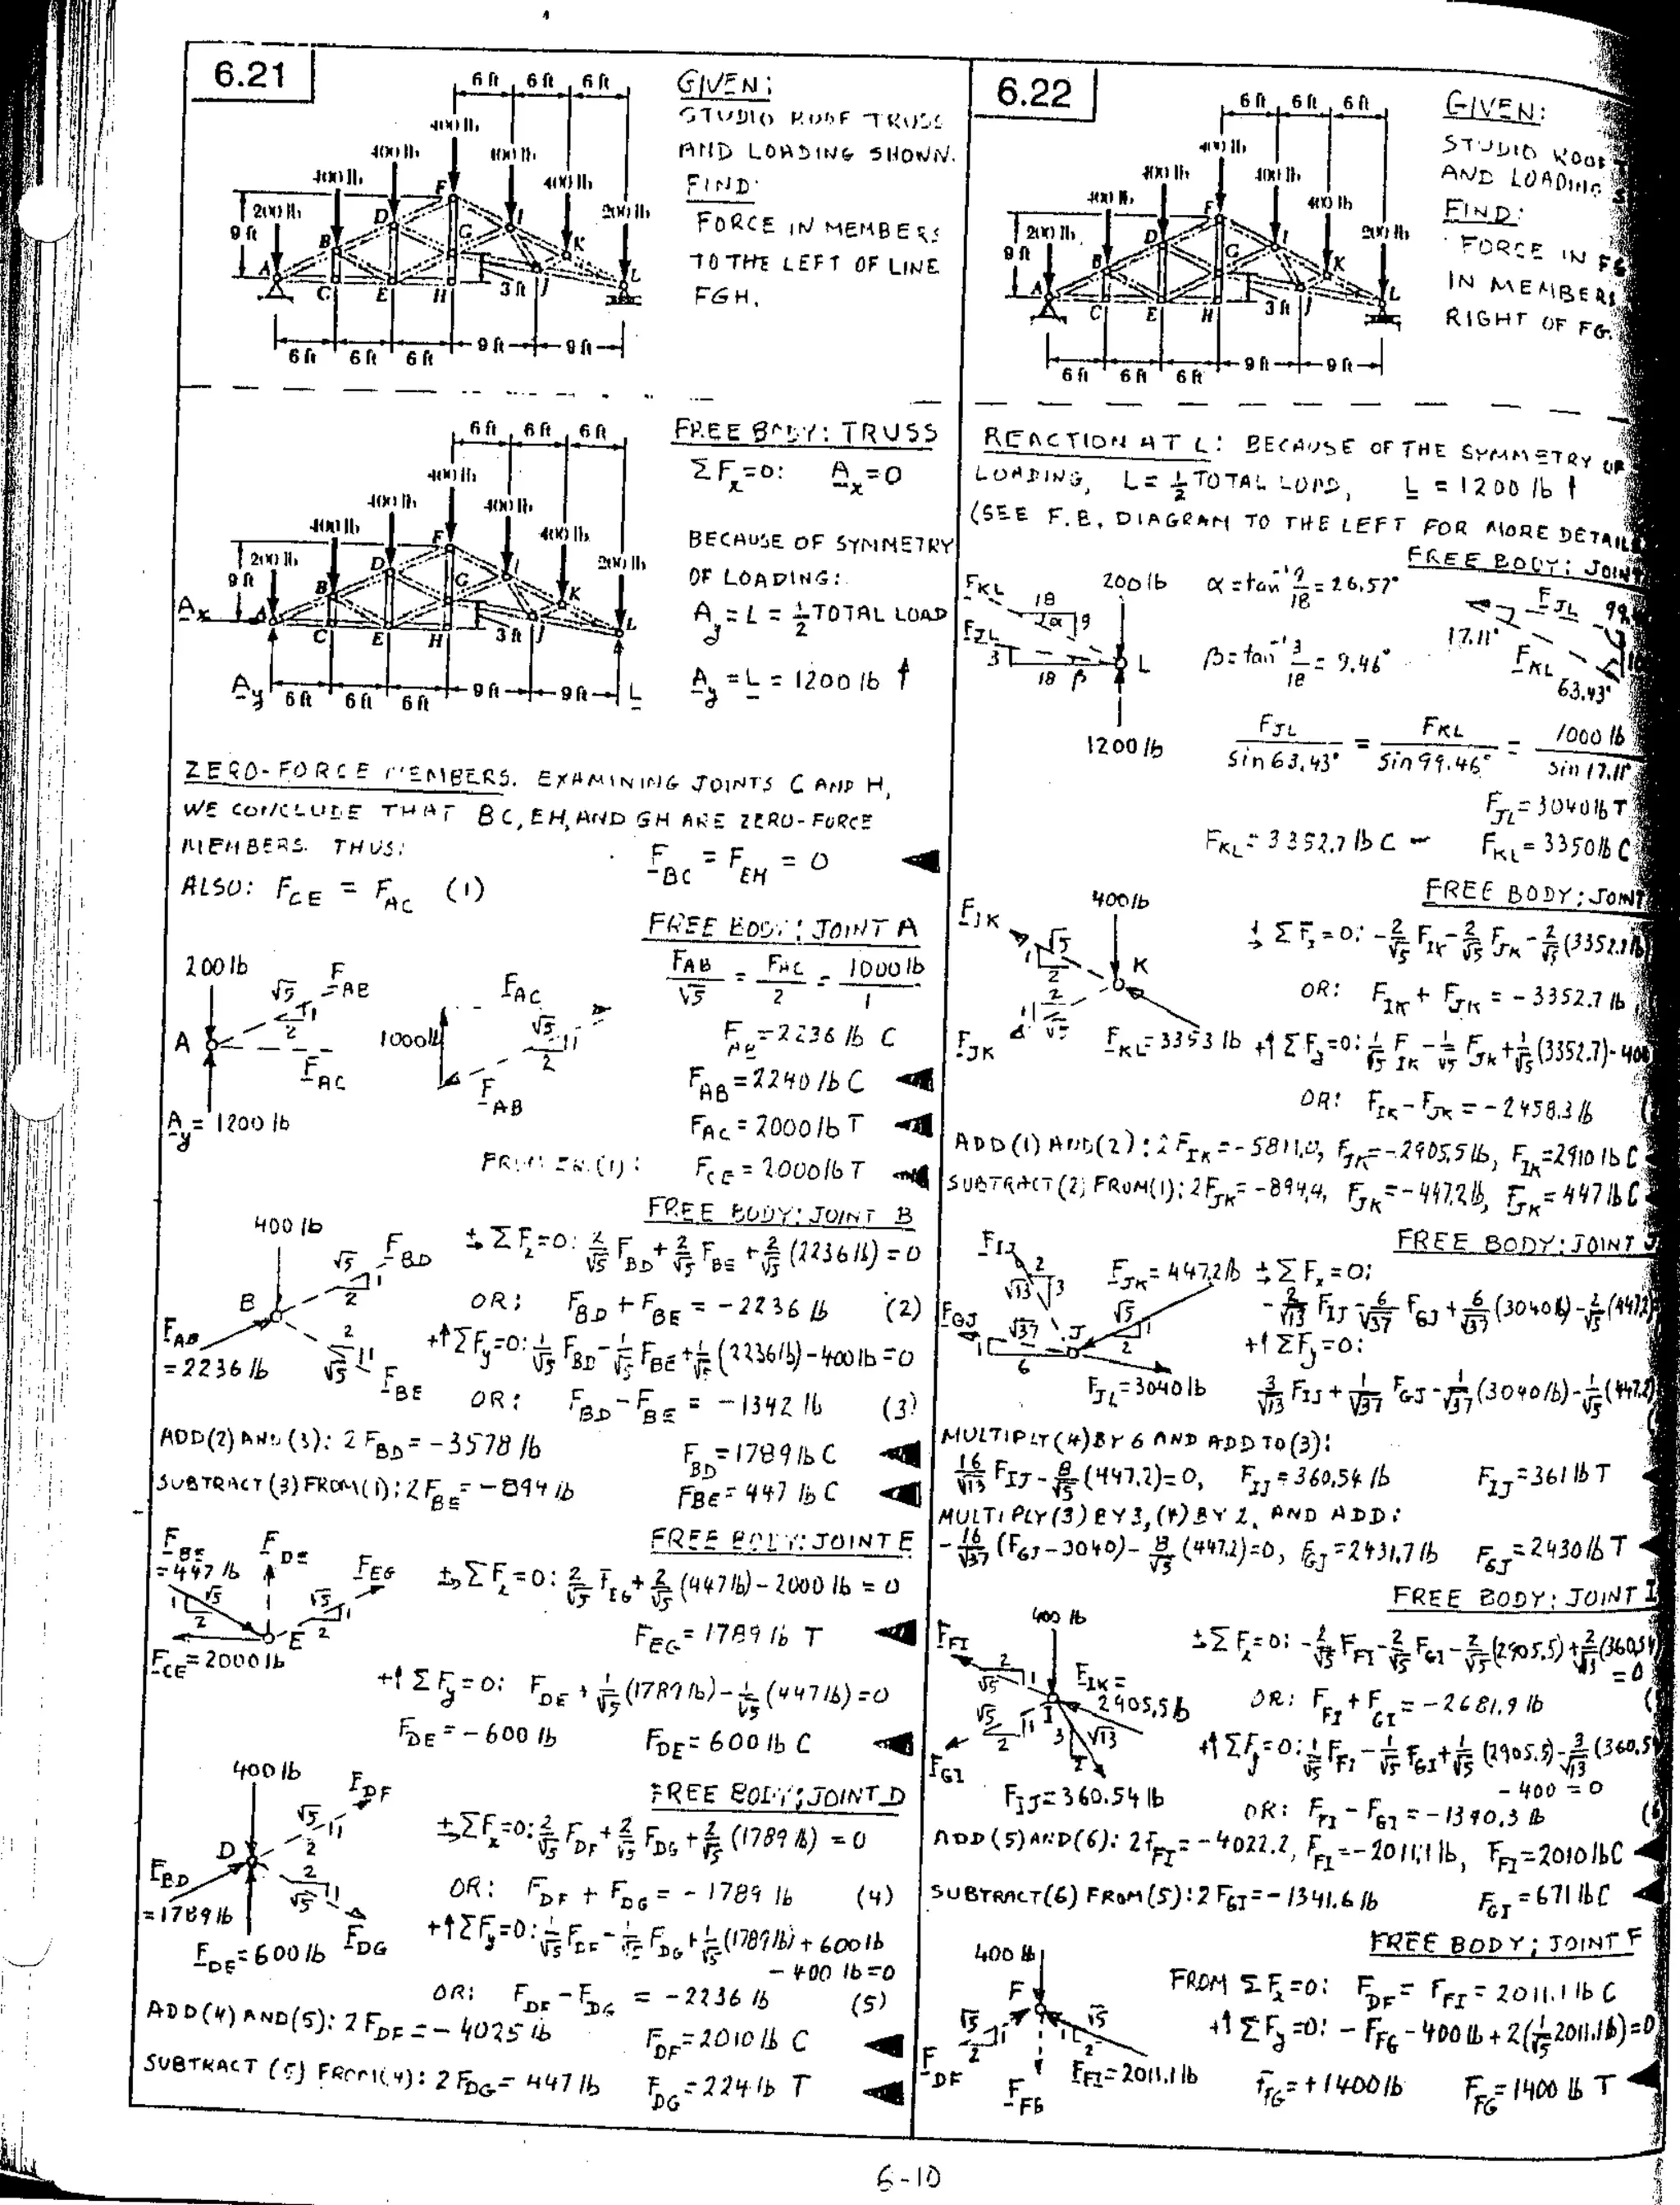 6.21
6 ft 6 ft 6 ft
400 lb
400 lb 400 lb
400 lb 400 lb
200 lb 200 lb
9 ft
A B C D E F G H I J K L
3 ft
6 ft 6 ft 6 ft 9 ft 9 ft
GIVEN:
STUDIO ROOF TRUSS
AND LOADING SHOWN.
FIND:
FORCE IN MEMBERS
TO THE LEFT OF LINE
FGH.
6 ft 6 ft 6 ft
400 lb
400 lb 400 lb
400 lb 400 lb
200 lb 200 lb
9 ft
A_x A B C D E F G H I J K L
3 ft
A_y 6 ft 6 ft 6 ft 9 ft 9 ft L
FREE BODY: TRUSS
ΣF_x=0: A_x=0
BECAUSE OF SYMMETRY
OF LOADING:
A_y = L = 1/2 TOTAL LOAD
A_y = L = 1200 lb ↑
ZERO-FORCE MEMBERS. EXAMINING JOINTS C AND H,
WE CONCLUDE THAT BC, EH, AND GH ARE ZERO-FORCE
MEMBERS. THUS:
F_BC = F_EH = 0
ALSO: F_CE = F_AC (1)
FREE BODY: JOINT A
200 lb
√5 F_AB
1
2
A
F_AC
A_y = 1200 lb
F_AC
1000 lb
√5 1
2
F_AB
F_AB/√5 = F_AC/2 = 1000 lb/1
F_AB = 2236 lb C
F_AB = 2240 lb C
F_AC = 2000 lb T
FROM EQ.(1): F_CE = 2000 lb T
FREE BODY: JOINT B
400 lb
√5 F_BD
1
2
B
F_AB
= 2236 lb
2
√5 1
F_BE
ΣF_x=0: 2/√5 F_BD + 2/√5 F_BE + 2/√5 (2236 lb) = 0
OR: F_BD + F_BE = -2236 lb (2)
+↑ΣF_y=0: 1/√5 F_BD - 1/√5 F_BE + 1/√5 (2236 lb) - 400 lb = 0
OR: F_BD - F_BE = -1342 lb (3)
ADD (2) AND (3): 2F_BD = -3578 lb F_BD = 1789 lb C
SUBTRACT (3) FROM (1): 2F_BE = -894 lb F_BE = 447 lb C
FREE BODY: JOINT E
F_BE
= 447 lb F_DE F_EG
√5 √5
1 1
2 E 2
F_CE = 2000 lb
ΣF_x=0: 2/√5 F_EG + 2/√5 (447 lb) - 2000 lb = 0
F_EG = 1789 lb T
+↑ΣF_y=0: F_DE + 1/√5 (1789 lb) - 1/√5 (447 lb) = 0
F_DE = -600 lb F_DE = 600 lb C
FREE BODY: JOINT D
400 lb
F_DF
√5 1
2
D
2
√5 1
F_BD
= 1789 lb
F_DE = 600 lb F_DG
ΣF_x=0: 2/√5 F_DF + 2/√5 F_DG + 2/√5 (1789 lb) = 0
OR: F_DF + F_DG = -1789 lb (4)
+↑ΣF_y=0: 1/√5 F_DF - 1/√5 F_DG + 1/√5 (1789 lb) + 600 lb
- 400 lb = 0
OR: F_DF - F_DG = -2236 lb (5)
ADD (4) AND (5): 2F_DF = -4025 lb F_DF = 2010 lb C
SUBTRACT (5) FROM (4): 2F_DG = 447 lb F_DG = 224 lb T
6.22
6 ft 6 ft 6 ft
400 lb
400 lb 400 lb
400 lb 400 lb
200 lb 200 lb
9 ft
A B C D E F G H I J K L
3 ft
6 ft 6 ft 6 ft 9 ft 9 ft
GIVEN:
STUDIO ROOF
AND LOADING
FIND:
FORCE IN FG
IN MEMBERS
RIGHT OF FG.
REACTION AT L: BECAUSE OF THE SYMMETRY OF
LOADING, L = 1/2 TOTAL LOAD, L = 1200 lb ↑
(SEE F.B. DIAGRAM TO THE LEFT FOR MORE DETAIL
FREE BODY: JOINT
F_KL 18 200 lb
α 9
F_JL
3
18 β L
1200 lb
α = tan⁻¹ 9/18 = 26.57°
β = tan⁻¹ 3/18 = 9.46°
F_JL
17.11°
F_KL
63.43°
F_JL/sin 63.43° = F_KL/sin 99.46° = 1000 lb/sin 17.11°
F_JL = 3040 lb T
F_KL = 3352.7 lb C F_KL = 3350 lb C
FREE BODY: JOINT
F_IK 400 lb
√5
1 2 K
2
1 √5
F_JK F_KL = 3353 lb
ΣF_x=0: -2/√5 F_IK - 2/√5 F_JK - 2/√5 (3352.7 lb)
OR: F_IK + F_JK = -3352.7 lb
+↑ΣF_y=0: 1/√5 F_IK - 1/√5 F_JK + 1/√5 (3352.7) - 400
OR: F_IK - F_JK = -2458.3 lb
ADD (1) AND (2): 2F_IK = -5811.0, F_IK = -2905.5 lb, F_IK = 2910 lb C
SUBTRACT (2) FROM (1): 2F_JK = -894.4, F_JK = -447.2 lb, F_JK = 447 lb C
FREE BODY: JOINT J
F_IJ 2
√13 3
F_JK = 447.2 lb
F_GJ √37 J √5 1
1 6 2
F_JL = 3040 lb
ΣF_x=0:
-2/√13 F_IJ - 6/√37 F_GJ + 6/√37 (3040 lb) - 2/√5 (447.2)
+↑ΣF_y=0:
3/√13 F_IJ + 1/√37 F_GJ - 1/√37 (3040 lb) - 1/√5 (447.2)
MULTIPLY (4) BY 6 AND ADD TO (3):
16/√13 F_IJ - 8/√5 (447.2) = 0, F_IJ = 360.54 lb F_IJ = 361 lb T
MULTIPLY (3) BY 3, (4) BY 2, AND ADD:
-16/√37 (F_GJ - 3040) - 8/√5 (447.2) = 0, F_GJ = 2431.7 lb F_GJ = 2430 lb T
FREE BODY: JOINT I
400 lb
F_FI 2
√5 1 F_IK =
2905.5 lb
√5 1 I 3 √13
2 2
F_GI
F_IJ = 360.54 lb
ΣF_x=0: -2/√5 F_FI - 2/√5 F_GI - 2/√5 (2905.5) + 2/√13 (360.54)
= 0
OR: F_FI + F_GI = -2681.9 lb
+↑ΣF_y=0: 1/√5 F_FI - 1/√5 F_GI + 1/√5 (2905.5) - 3/√13 (360.54
- 400 = 0
OR: F_FI - F_GI = -1340.3 lb
ADD (5) AND (6): 2F_FI = -4022.2, F_FI = -2011.1 lb, F_FI = 2010 lb C
SUBTRACT (6) FROM (5): 2F_GI = -1341.6 lb F_GI = 671 lb C
FREE BODY: JOINT F
400 lb
F
√5 1 √5 1
2 2
F_DF F_FI = 2011.1 lb
F_FG
FROM ΣF_x=0: F_DF = F_FI = 2011.1 lb C
+↑ΣF_y=0: -F_FG - 400 lb + 2(1/√5 2011.1 lb) = 0
F_FG = +1400 lb F_FG = 1400 lb T
6-10